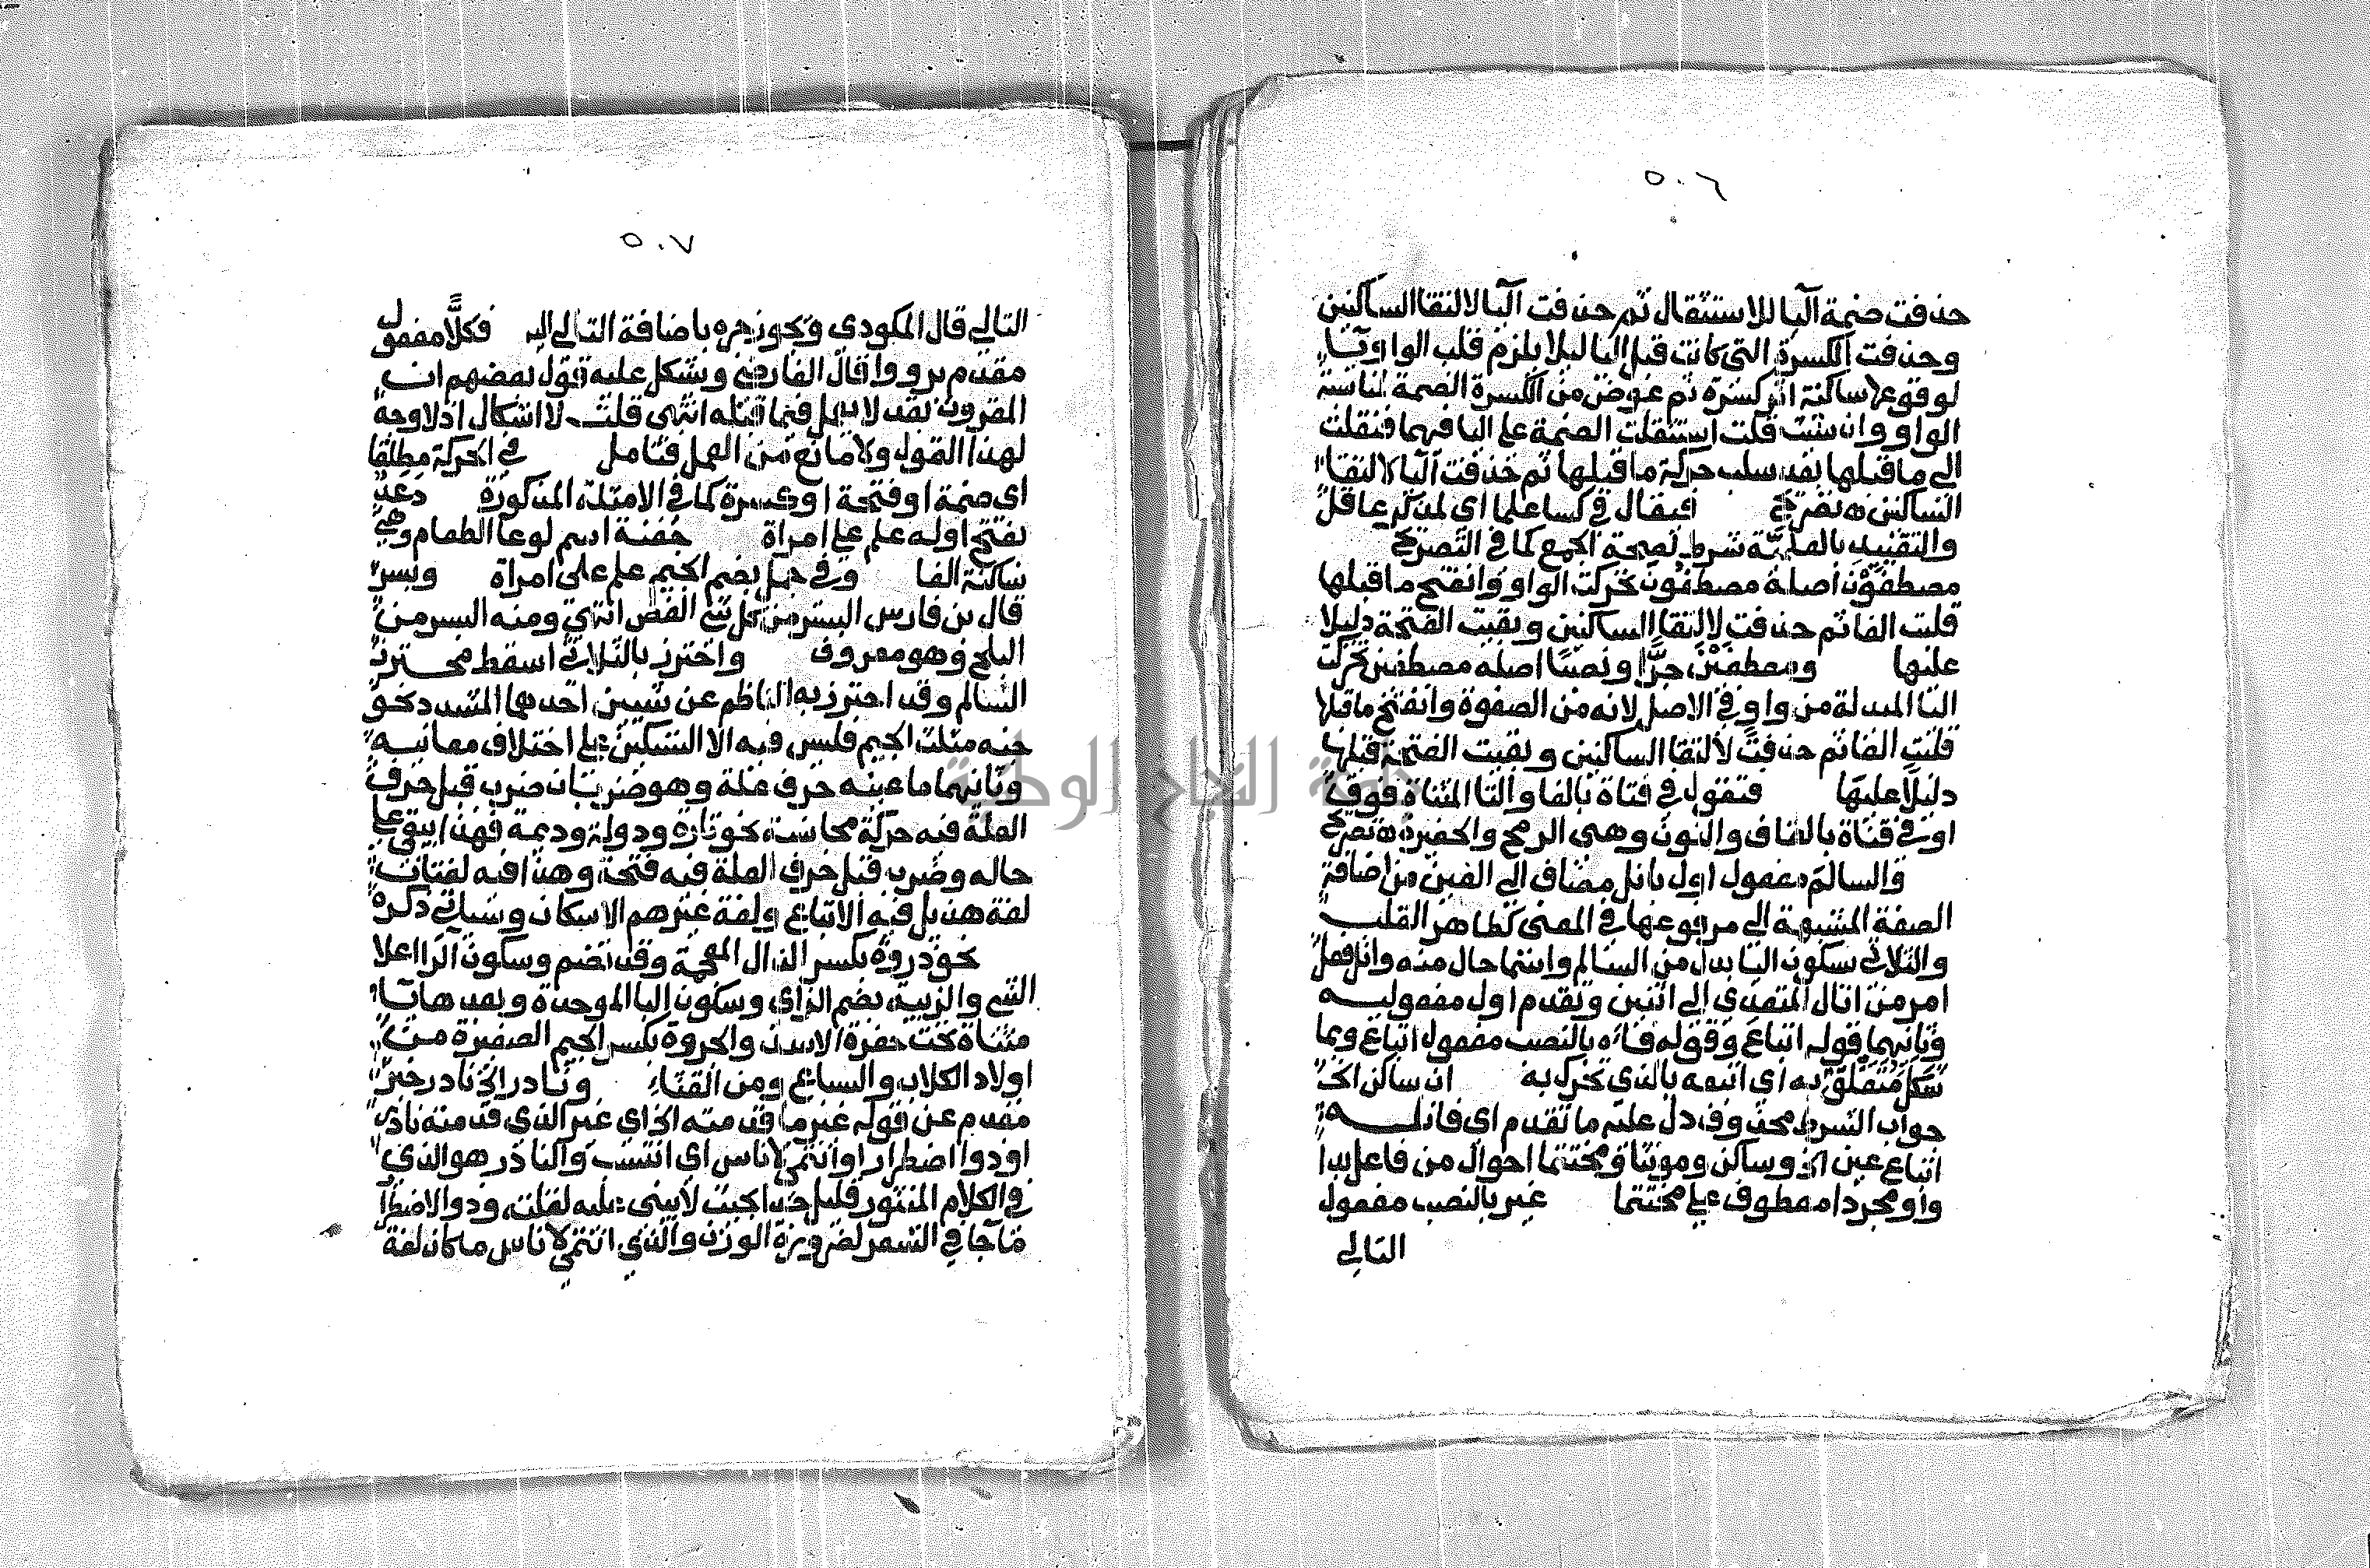 ٥٠٦
حذفت ضمة اليا للاستثقال ثم حذفت اليا لالتقا الساكنين
وحذفت الكسرة التي كانت قبل اليا ليلا يلزم قلب الواو يا
لوقوعها ساكنة اثر كسرة ثم عوض من الكسرة الضمة لمناسبة
الواو وان شئت قلت استثقلت الضمة على اليا فيهما فنقلت
الى ما قبلها بعد سلب حركة ما قبلها ثم حذفت اليا لالتقا
الساكنين ه تصريح فيقال في كسا علما اي لمذكر عاقل
والتقييد بالعلمية شرط لصحة الجمع كما في التصريح
مصطفون اصله مصطفون تحركت الواو وانفتح ما قبلها
قلبت الفا ثم حذفت لالتقا الساكنين وبقيت الفتحة دليلا
عليها ومصطفين جرا ونصبا اصله مصطفين تحركت
اليا المبدلة من واو في الاصل لانه من الصفوة وانفتح ما قبلها
قلبت الفا ثم حذفت لالتقا الساكنين وبقيت الفتحة قبلها
دليلا عليها فتقول في فتاة بالفا والتا المثناة فوق
او في قناة بالقاف والنون وهي الرمح والحفيرة ه تصريح
والسالم مفعول اول بانل مضاف الى العين من اضافة
الصفة المشبهة الى مرفوعها في المعنى كطاهر القلب
والثلاثي سكون اليا بدل من السالم واسما حال منه وانل فعل
امر من انال المتعدي الى اثنين وتقدم اول مفعوليه
وثانيهما قوله اتباع وقوله فاءه بالنصب مفعول اتباع وبما
شكل متعلق به اي اتبعه بالذي تحرك به ان ساكن الخ
جواب الشرط محذوف دل عليه ما تقدم اي فانله
اتباع عين الخ وساكن ومونثا ومختتما احوال من فاعل بدا
وا ومجردا معطوف على مختتما غير بالنصب مفعول
التالي
٥٠٧
التالي قال المكودي ويجوز جره باضافة التالي اليه فكلا مفعول
مقدم برووا قال الفارضي ويشكل عليه قول بعضهم ان
المقرون بقد لا يعمل فيما قبله انتهى قلت لا اشكال اذ لا وجه
لهذا القول ولا مانع من العمل فتامل في الحركة مطلقا
اي ضمة او فتحة او كسرة كما في الامثلة المذكورة دعد
بفتح اوله علم على امراة جفنة اسم لوعا الطعام وهي
ساكنة الفا وفي جمل بضم الجيم علم على امراة وبسر
قال بن فارس البسر من كل شي الغض انتهى ومنه البسر من
البلح وهو معروف واحترز بالثلاثي اسقط محترز
السالم وقد احترز به الناظم عن شيين احدهما المشدد نحو
جنه مثلث الجيم فليس فيه الا التسكين على اختلاف معانيه
وثانيهما ما عينه حرف علة وهو ضربان ضرب قبل حرف
العلة فيه حركة مجانسة نحو تارة ودولة وديمة فهذا يبقى على
حاله وضرب قبل حرف العلة فيه فتحة وهذا فيه لغتان
لغة هذيل فيه الاتباع ولغة غيرهم الاسكان وسياتي ذكره
نحو ذروة بكسر الذال المعجمة وقد تضم وسكون الرا اعلا
الشي والزبية بضم الزاي وسكون البا الموحدة وبعدها يا
مثناة تحت حفرة الاسد والجروة بكسر الجيم الصغيرة من
اولاد الكلاب والسباع ومن القثاء ونادر الخ نادر خبر
مقدم عن قوله غير ما قدمته الخ اي غير الذي قدمته نادر
او ذوا اضطرار او انتمى لاناس اي انتسب والنادر هو الذي
في الكلام المنثور قليل جدا بحيث لا يبنى عليه لقلته وذو الاضطرار
ما جا في الشعر لضرورة الوزن والذي انتمى لاناس ما كان لغة